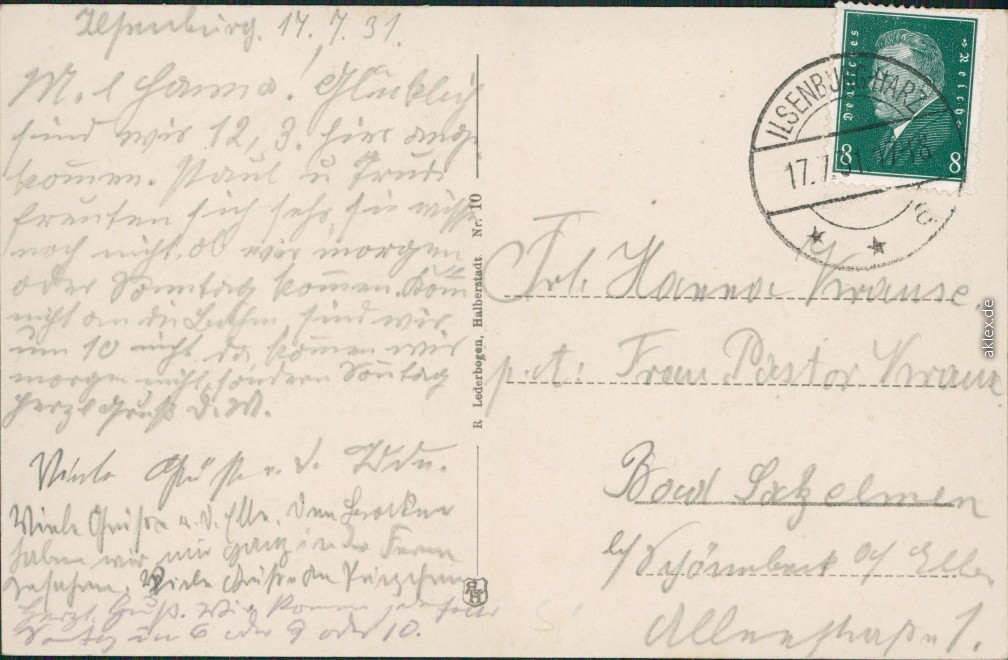 Ilsenburg. 17.7.31.
M. l Hanna! Glücklich
sind wir 12,3. hier ange
kommen. Paul u Trudi
freuten sich sehr, sie wissen
noch nicht ob wir morgen
oder Sonntag kommen.
nicht an die Bahn, sind wir
um 10 nicht da kommen wir
morgen nicht, sondern Sonntag
herzl Gruß D. W.
Viele Grüße v. d.
Viele Grüsse a. d. Elle. Den Brocken
haben wir nur ganz in der Ferne
gesehen. Viele Grüsse an
herzl. Gruß. Wir kommen jedenfalls
6 oder 9 oder 10.
R Lederbogen, Halberstadt Nr. 10
RLH
Deutsches Reich
8 8
ILSENBURG (HARZ)
17.7.31
Frl. Hanna Krause,
p. a. Frau Pastor Kraus
Bad Salzelmen
b/ Schönebeck a/ Elbe
Alleestraße 1.
aklex.de